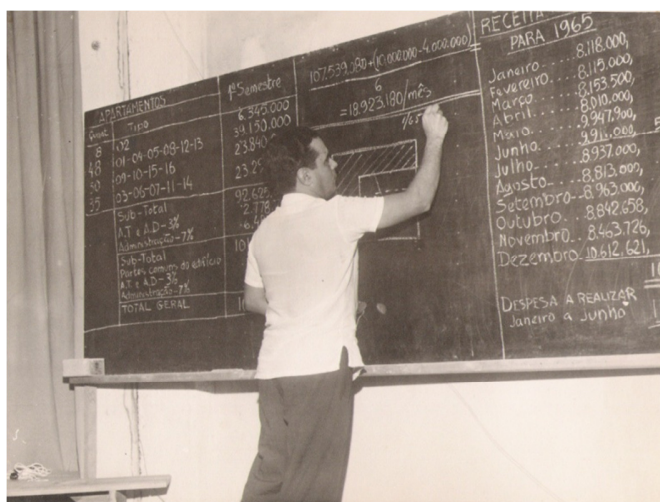 APARTAMENTOS
Quant. Tipo 1º Semestre
8 02 6.345.000
48 01-04-05-08-12-13 39.150.000
30 09-10-15-16 23.840
35 03-06-07-11-14 23.29
Sub-Total 92.625
A.T e A.D-3% 2.778
Administração-7%
Sub-Total 101
Partes comuns do edifício
A.T e A.D-3%
Administração-7%
TOTAL GERAL
107.539.080+(10.000.000-4.000.000)
6
=18.923.180/mês
RECEITA
PARA 1965
Janeiro.....8.118.000,
Fevereiro....8.115.000,
Março.....8.153.500,
Abril.....8.010.000,
Maio.....9.947.900,
Junho.....9.911.000,
Julho.....8.937.000,
Agosto.....8.813.000,
Setembro...8.963.000,
Outubro...8.842.658,
Novembro..8.463.726,
Dezembro..10.612.621,
DESPESA A REALIZAR
Janeiro a Junho